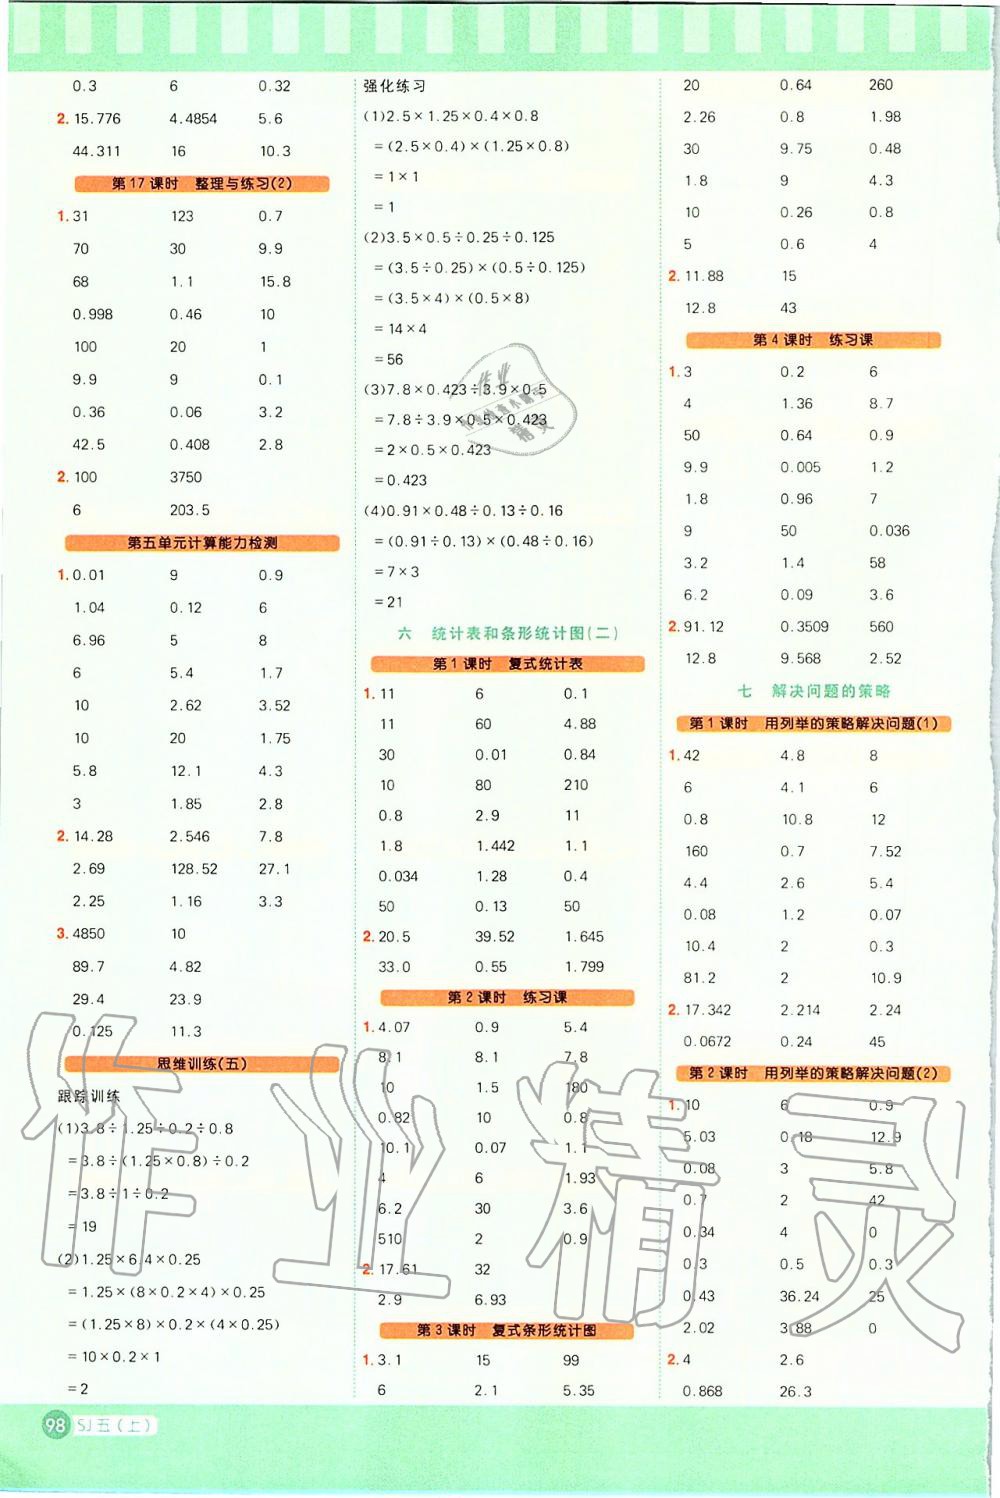 0.3 6 0.32
2. 15.776 4.4854 5.6
44.311 16 10.3
第17课时 整理与练习(2)
1. 31 123 0.7
70 30 9.9
68 1.1 15.8
0.998 0.46 10
100 20 1
9.9 9 0.1
0.36 0.06 3.2
42.5 0.408 2.8
2. 100 3750
6 203.5
第五单元计算能力检测
1. 0.01 9 0.9
1.04 0.12 6
6.96 5 8
6 5.4 1.7
10 2.62 3.52
10 20 1.75
5.8 12.1 4.3
3 1.85 2.8
2. 14.28 2.546 7.8
2.69 128.52 27.1
2.25 1.16 3.3
3. 4850 10
89.7 4.82
29.4 23.9
0.125 11.3
思维训练(五)
跟踪训练
(1)3.8÷1.25÷0.2÷0.8
=3.8÷(1.25×0.8)÷0.2
=3.8÷1÷0.2
=19
(2)1.25×6.4×0.25
=1.25×(8×0.2×4)×0.25
=(1.25×8)×0.2×(4×0.25)
=10×0.2×1
=2
强化练习
(1)2.5×1.25×0.4×0.8
=(2.5×0.4)×(1.25×0.8)
=1×1
=1
(2)3.5×0.5÷0.25÷0.125
=(3.5÷0.25)×(0.5÷0.125)
=(3.5×4)×(0.5×8)
=14×4
=56
(3)7.8×0.423÷3.9×0.5
=7.8÷3.9×0.5×0.423
=2×0.5×0.423
=0.423
(4)0.91×0.48÷0.13÷0.16
=(0.91÷0.13)×(0.48÷0.16)
=7×3
=21
六 统计表和条形统计图(二)
第1课时 复式统计表
1. 11 6 0.1
11 60 4.88
30 0.01 0.84
10 80 210
0.8 2.9 11
1.8 1.442 1.1
0.034 1.28 0.4
50 0.13 50
2. 20.5 39.52 1.645
33.0 0.55 1.799
第2课时 练习课
1. 4.07 0.9 5.4
8.1 8.1 7.8
10 1.5 180
0.82 10 0.8
10.1 0.07 1.1
4 6 1.93
6.2 30 3.6
510 2 0.9
2. 17.61 32
2.9 6.93
第3课时 复式条形统计图
1. 3.1 15 99
6 2.1 5.35
20 0.64 260
2.26 0.8 1.98
30 9.75 0.48
1.8 9 4.3
10 0.26 0.8
5 0.6 4
2. 11.88 15
12.8 43
第4课时 练习课
1. 3 0.2 6
4 1.36 8.7
50 0.64 0.9
9.9 0.005 1.2
1.8 0.96 7
9 50 0.036
3.2 1.4 58
6.2 0.09 3.6
2. 91.12 0.3509 560
12.8 9.568 2.52
七 解决问题的策略
第1课时 用列举的策略解决问题(1)
1. 42 4.8 8
6 4.1 6
0.8 10.8 12
160 0.7 7.52
4.4 2.6 5.4
0.08 1.2 0.07
10.4 2 0.3
81.2 2 10.9
2. 17.342 2.214 2.24
0.0672 0.24 45
第2课时 用列举的策略解决问题(2)
1. 10 6 0.9
5.03 0.18 12.9
0.08 3 5.8
0.7 2 42
0.34 4 0
0.3 0.5 0.3
0.43 36.24 25
2.02 3.88 0
2. 4 2.6
0.868 26.3
98 SJ五(上)
作业精灵